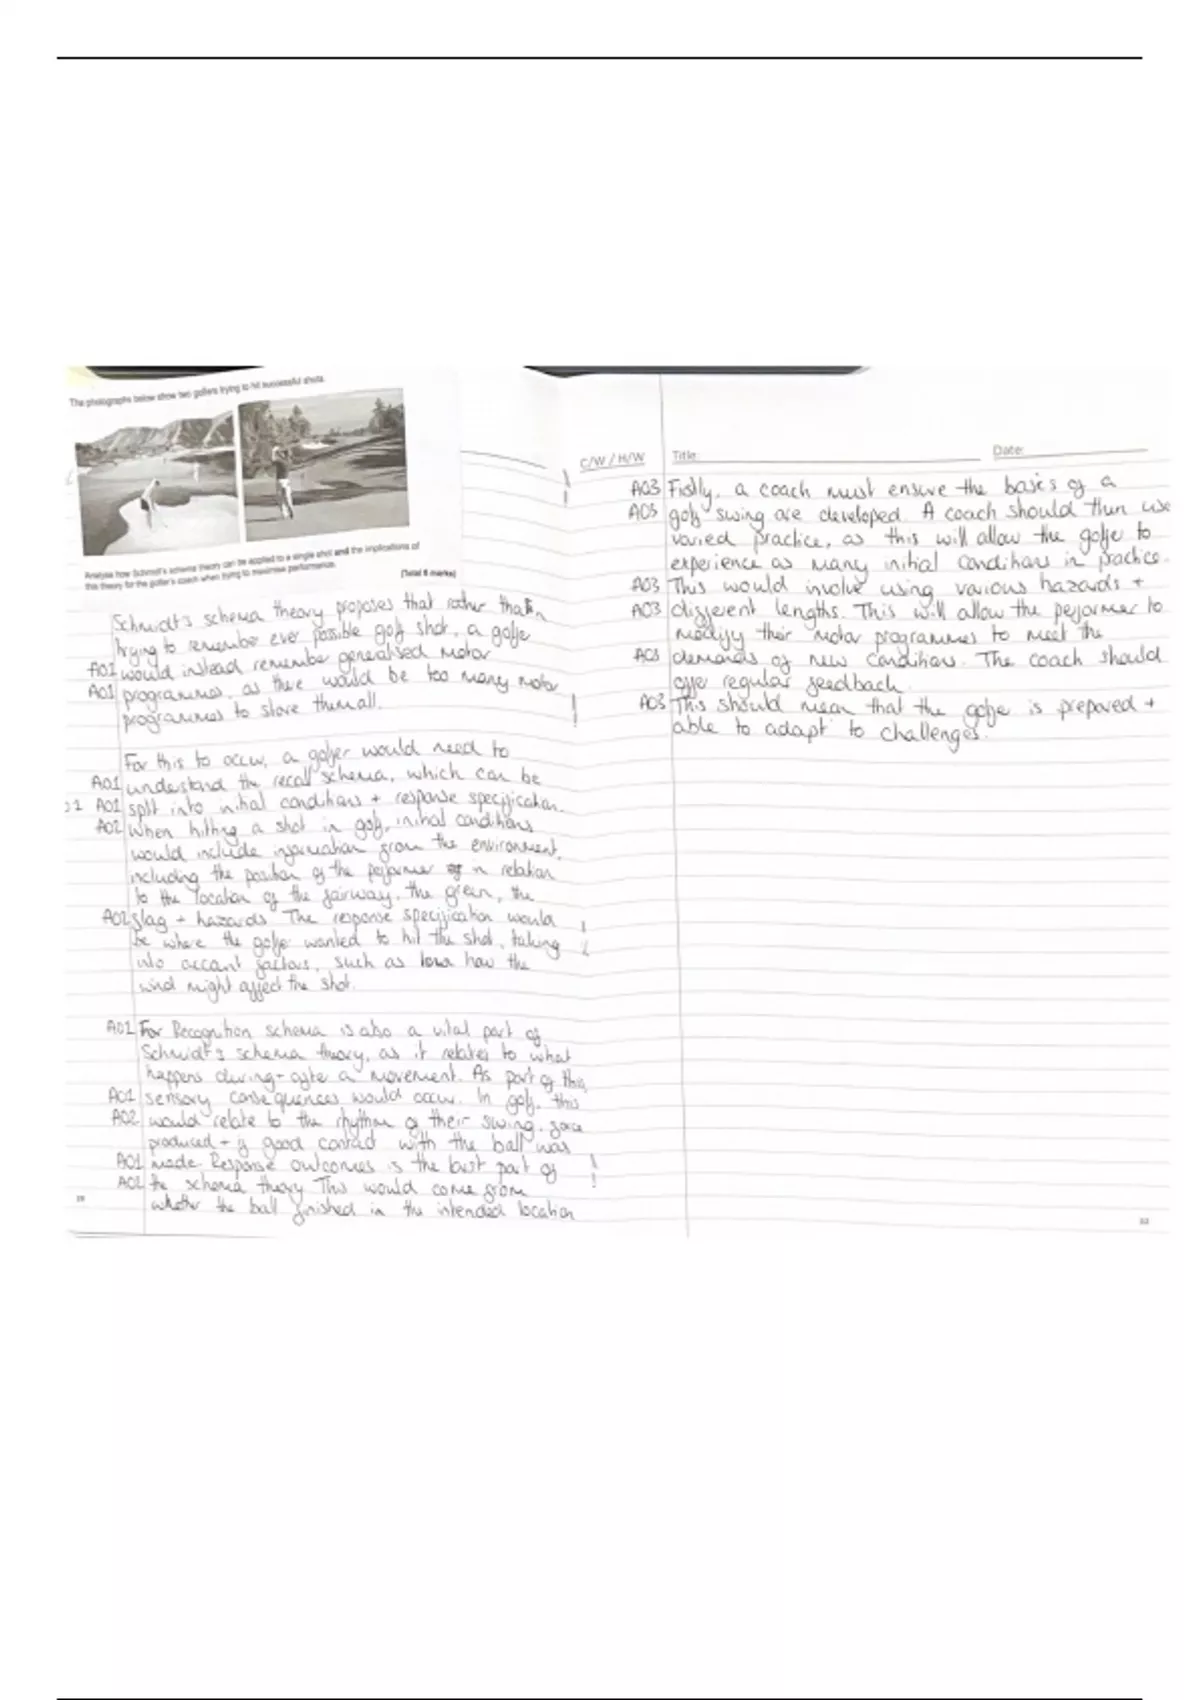 The photographs below show two golfers trying to hit successful shots.
Analyse how Schmidt's schema theory can be applied to a single shot and the implications of
this theory for the golfer's coach when trying to maximise performance.
[Total 8 marks]
Schmidt's schema theory proposes that rather than
trying to remember ever possible golf shot, a golfer
A01 would instead remember generalised motor
A01 programmes, as there would be too many motor
programmes to store them all.
For this to occur, a golfer would need to
A01 understand the recall schema, which can be
A01 split into initial conditions + response specification.
A02 When hitting a shot in golf, initial conditions
would include information from the environment,
including the position of the performer in relation
to the location of the fairway, the green, the
A02 flag + hazards. The response specification would
be where the golfer wanted to hit the shot, taking
into account factors, such as how the
wind might affect the shot.
A01 Recognition schema is also a vital part of
Schmidt's schema theory, as it relates to what
happens during + after a movement. As part of this,
A01 sensory consequences would occur. In golf, this
A02 would relate to the rhythm of their swing, force
produced + if good contact with the ball was
A01 made. Response outcomes is the last part of
A02 the schema theory. This would come from
whether the ball finished in the intended location
C/W / H/W Title: Date:
A03 Firstly, a coach must ensure the basics of a
A03 golf swing are developed. A coach should then use
varied practice, as this will allow the golfer to
experience as many initial conditions in practice.
A03 This would involve using various hazards +
A03 different lengths. This will allow the performer to
modify their motor programmes to meet the
A03 demands of new conditions. The coach should
offer regular feedback.
A03 This should mean that the golfer is prepared +
able to adapt to challenges.